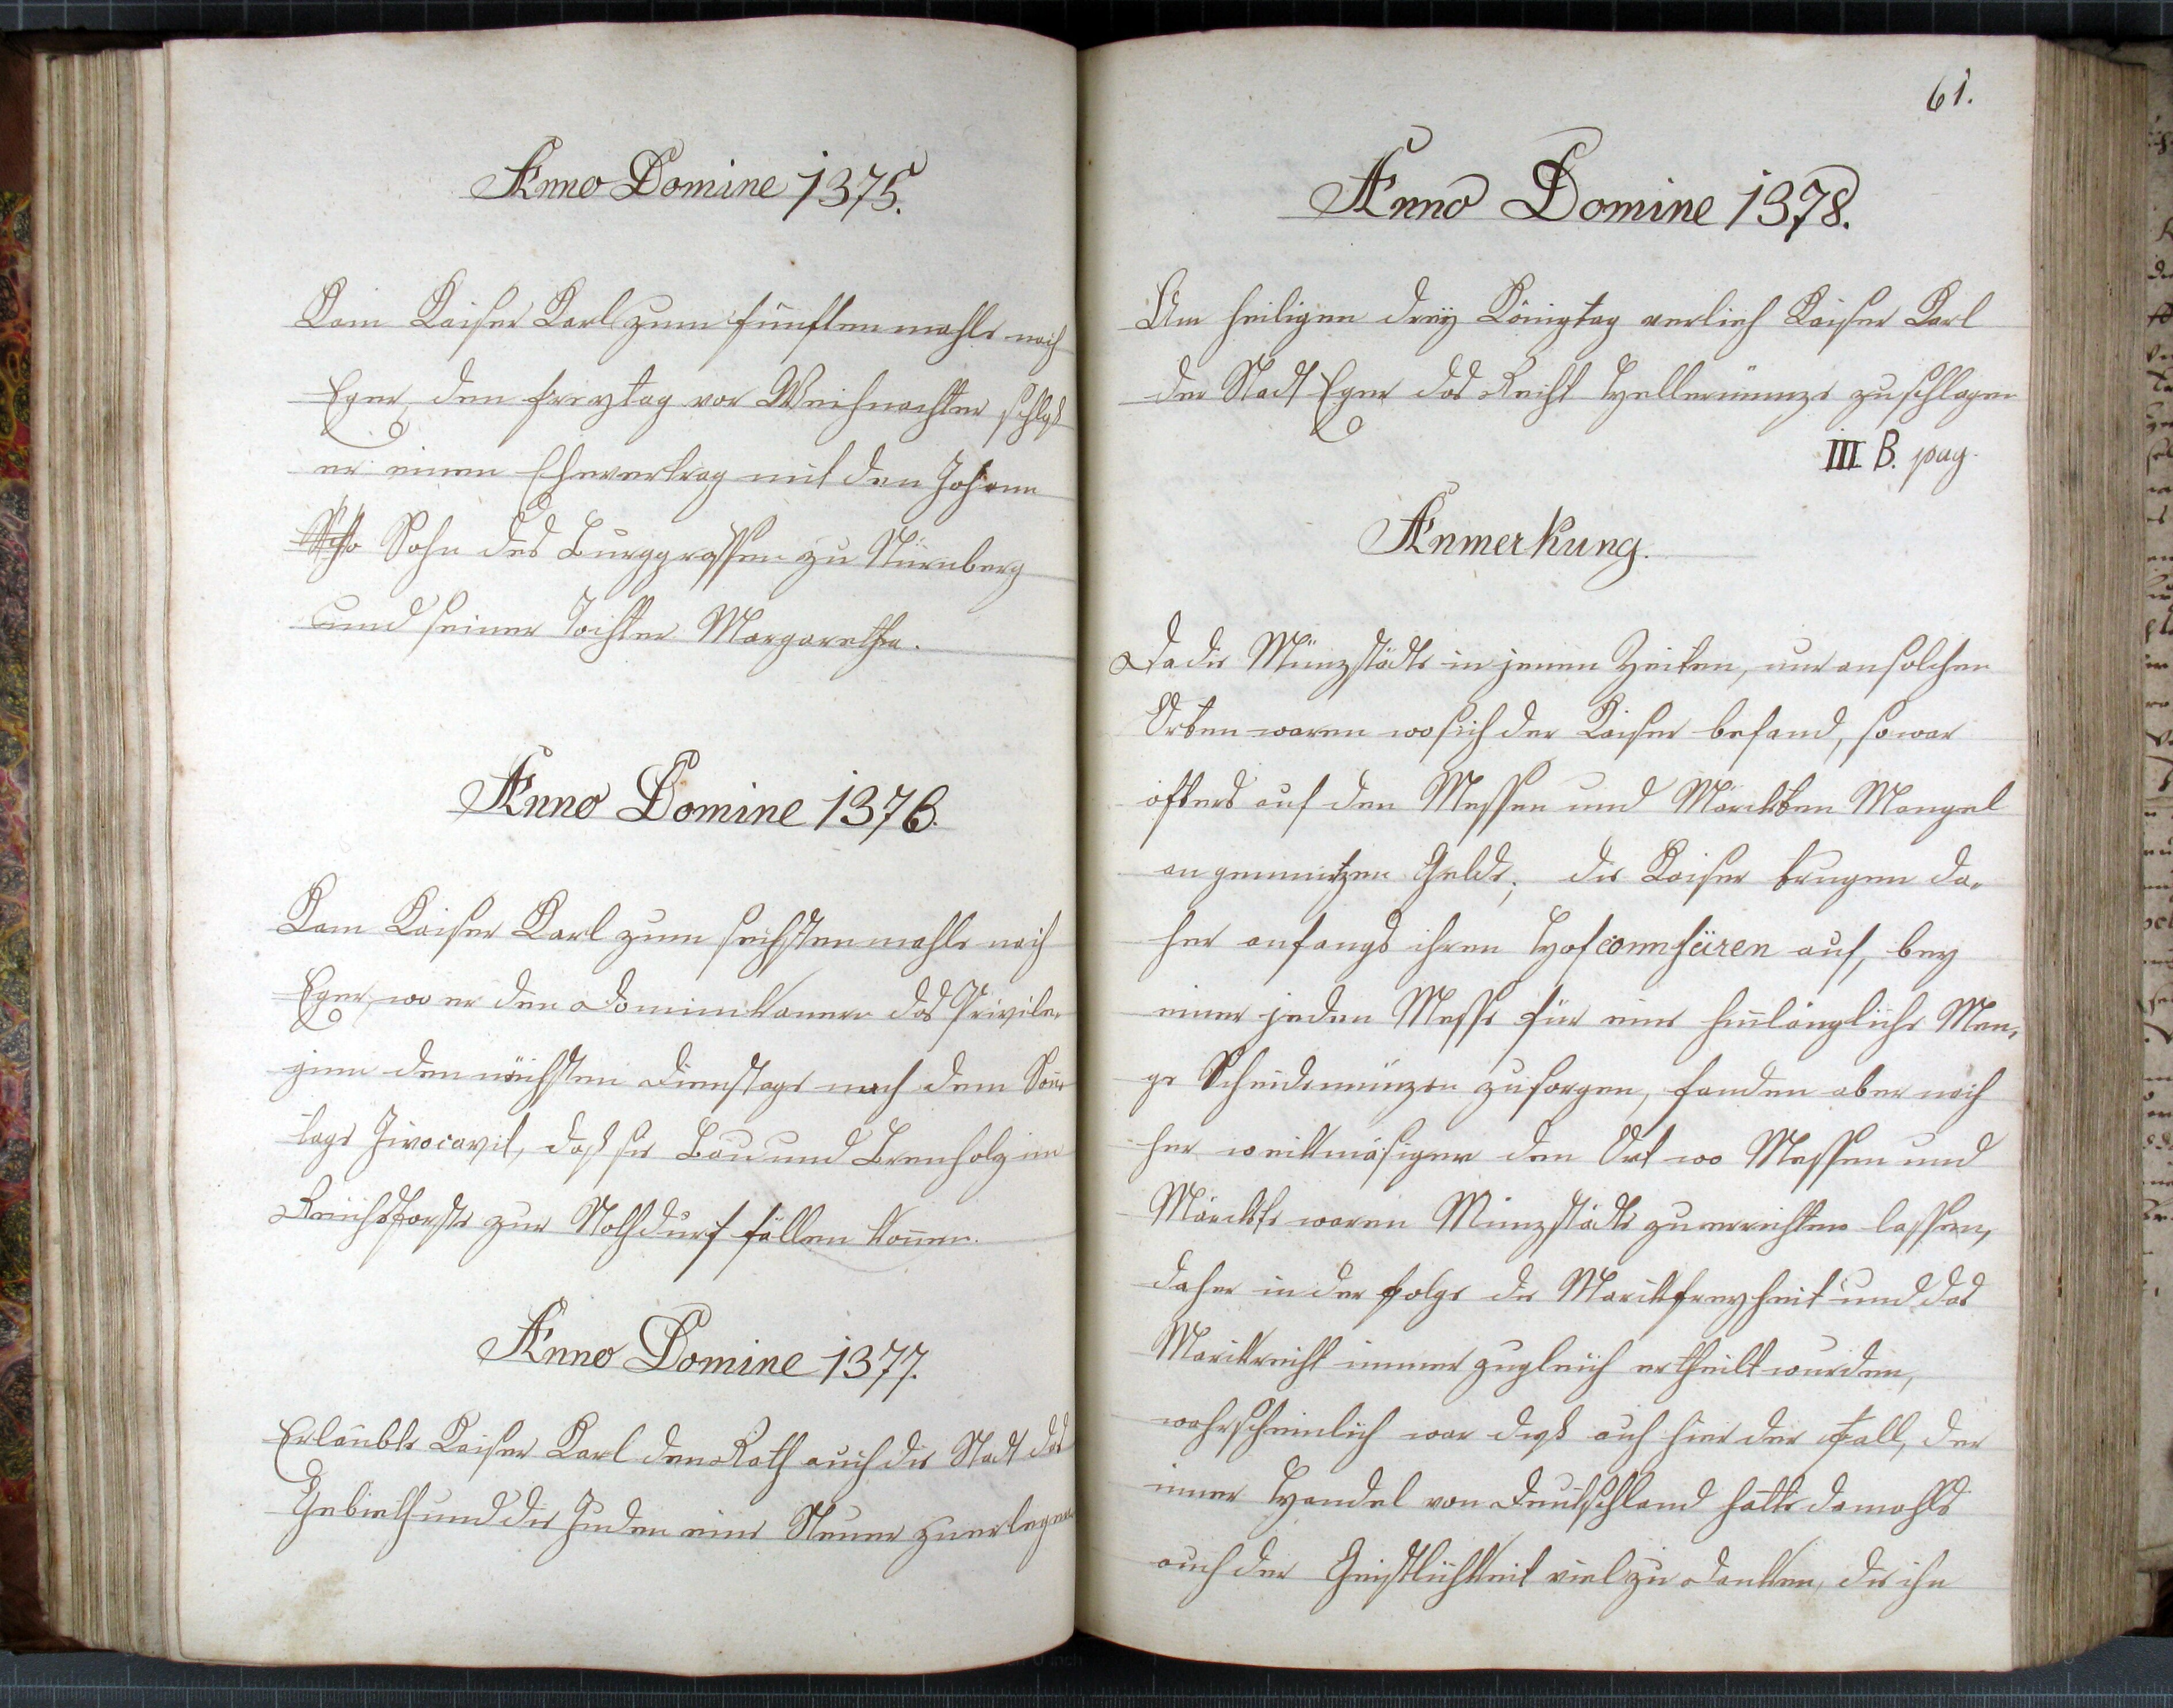 Anno Domine 1375.
Kam Kaiser Karl zum fünften mahle nach
Eger, den Freytag vor Weihnachten schloß
er einen Ehevertrag mit den Johann
Sohn des Burggraffen zu Nürnberg
und seiner Tochter Margaretha.
Anno Domine 1376.
Kam Kaiser Karl zum sechsten mahle nach
Eger, wo er den Dominikanern das Privile-
gium den nächsten Dienstage nach dem Son-
tage Invocavit, daß sie Bau und Brenholz im
Reichsforste zur Nothdurf fällen können.
Anno Domine 1377.
Erlaubte Kaiser Karl den Rath auf die Stadt das
Gebieth und die Juden eine Steuer zu erlegen
61.
Anno Domine 1378.
Am heiligen drey Königtag verlieh Kaiser Karl
der Stadt Eger das Recht Hellermünze zu schlagen
III B. pag.
Anmerkung.
Da die Münzstädte in jenen Zeiten, nur an solchen
Orten waren wo sich der Kaiser befand, so war
öfters auf den Messen und Märckten Mangel
an gemintzen Gelde; die Kaiser trugen da-
her anfangs ihren Hof auf, bey
einer jeden Messe für eine hinlängliche Men-
ge Scheidemünzen zu sorgen, fanden aber nach
her den Ort wo Messen und
Märckte waren Münzstädte zu errichten lassen,
daher in der Folge die Marcktfreyheit und das
Marcktrecht immer zugleich ertheilt wurden,
wahrscheinlich war dieß auch hier der Fall, der
inner Handel von Deutschland hatte damahls
auch der Geistlichkeit viel zu danken, die ihn